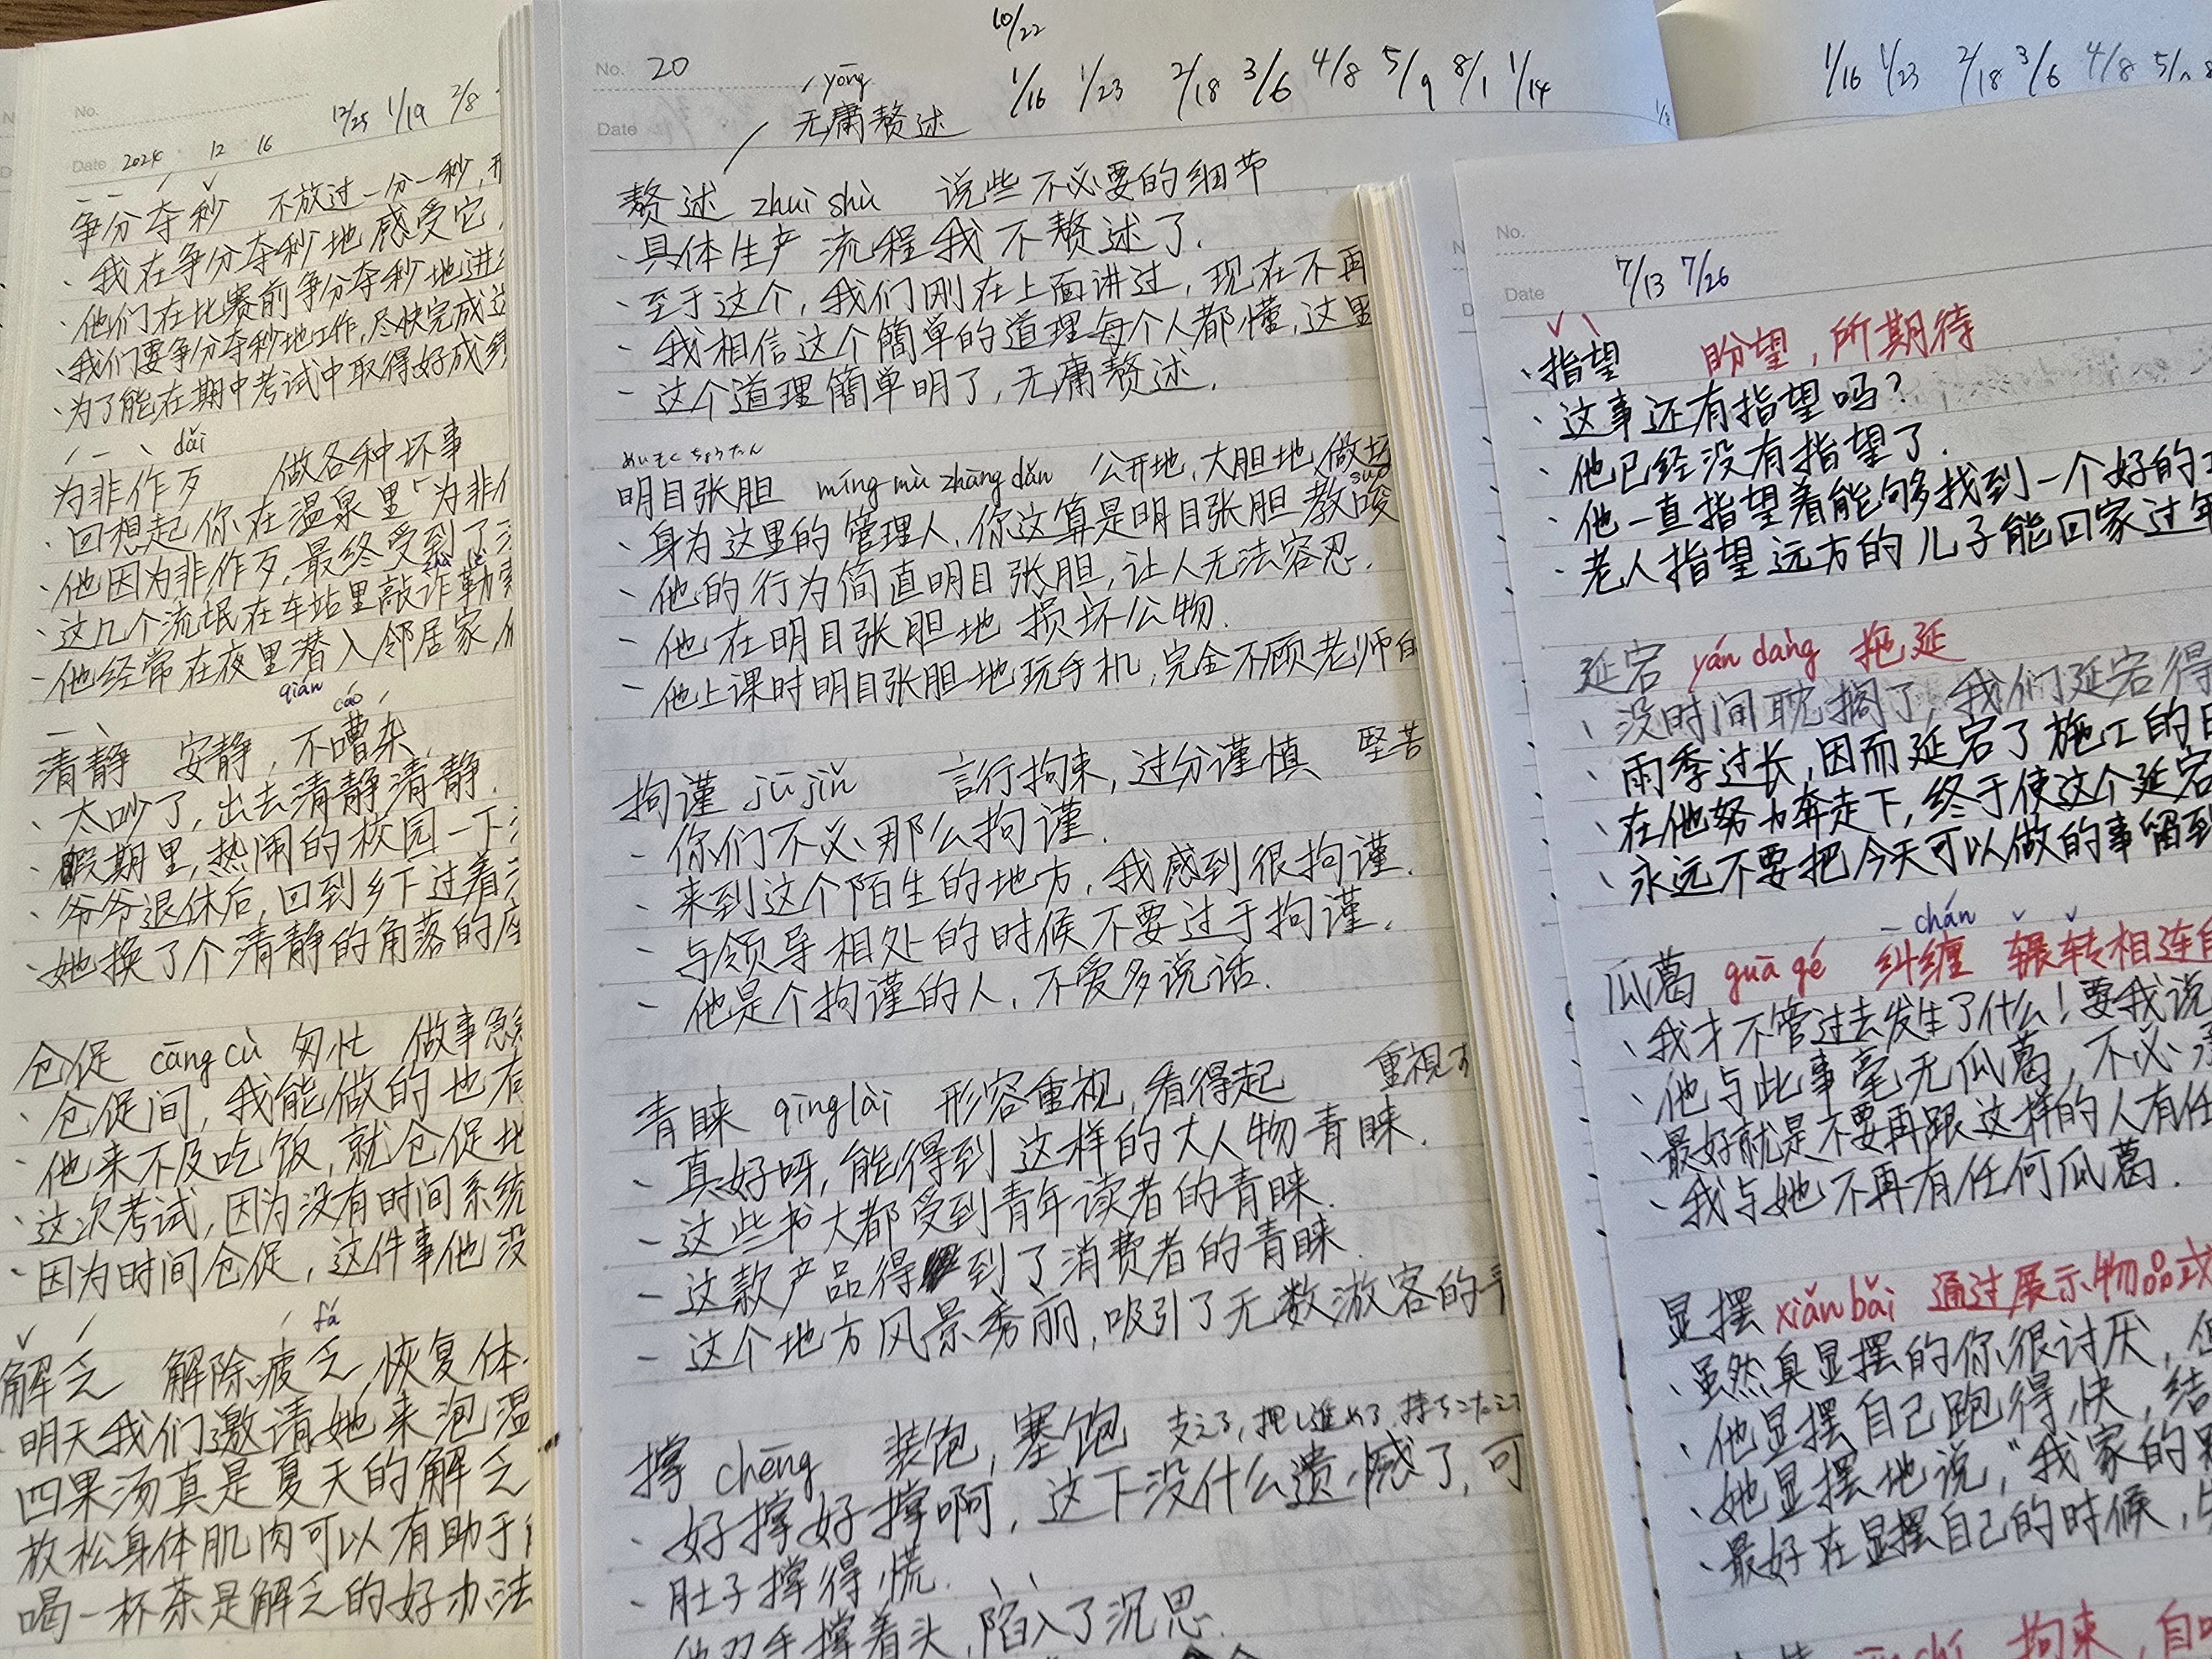 No.
12/25 1/19 2/8
Date 2024 12 16
争分夺秒 不放过一分一秒,
、我在争分夺秒地感受它,
、他们在比赛前争分夺秒地进
、我们要争分夺秒地工作,尽快完成这
、为了能在期中考试中取得好成绩
dǎi
为非作歹 做各种坏事
、回想起你在温泉里「为非作
、他因为非作歹,最终受到了
zhà lè
、这几个流氓在车站里敲诈勒索
、他经常在夜里潜入邻居家
qián cáo
清静 安静,不嘈杂
、太吵了,出去清静清静.
、假期里,热闹的校园一下
、爷爷退休后,回到乡下过着
、她换了个清静的角落的座
仓促 cāng cù 匆忙 做事急
、仓促间,我能做的也有
、他来不及吃饭,就仓促地
、这次考试,因为没有时间系统
、因为时间仓促,这件事他没
fá
解乏 解除疲乏,恢复体
、明天我们邀请她来泡温
四果汤真是夏天的解乏
放松身体肌肉可以有助于
喝一杯茶是解乏的好办法
10/22
No. 20
1/16 1/23 2/18 3/6 4/8 5/9 8/1 1/14
yōng
Date 无庸赘述
赘述 zhuì shù 说些不必要的细节
、具体生产流程我不赘述了.
、至于这个,我们刚在上面讲过,现在不再
、我相信这个簡单的道理每个人都懂,这里
- 这个道理簡单明了,无庸赘述.
めいもくちょうたん
明目张胆 míng mù zhāng dǎn 公开地,大胆地,做坏
suō
、身为这里的管理人,你这算是明目张胆教唆
- 他的行为简直明目张胆,让人无法容忍.
- 他在明目张胆地损坏公物.
- 他上课时明目张胆地玩手机,完全不顾老师的
拘谨 jū jǐn 言行拘束,过分谨慎 堅苦
- 你们不必那么拘谨.
、来到这个陌生的地方,我感到很拘谨.
、与领导相处的时候不要过于拘谨.
- 他是个拘谨的人,不爱多说话.
青睐 qīng lài 形容重视,看得起 重視す
、真好呀,能得到这样的大人物青睐.
- 这些书大都受到青年读者的青睐.
- 这款产品得到了消费者的青睐.
- 这个地方风景秀丽,吸引了无数游客的青
撑 chēng 装饱,塞饱 支える,押し進める,持ちこたえる
、好撑好撑啊,这下没什么遗憾了,可
、肚子撑得慌.
他双手撑着头,陷入了沉思.
1/16 1/23 2/18 3/6 4/8 5/
No.
7/13 7/26
Date
、指望 盼望,所期待
、这事还有指望吗?
、他已经没有指望了.
、他一直指望着能够找到一个好的
、老人指望远方的儿子能回家过年
延宕 yán dàng 拖延
、没时间耽搁了,我们延宕得
、雨季过长,因而延宕了施工的日
、在他努力奔走下,终于使这个延宕
、永远不要把今天可以做的事留到
chán
瓜葛 guā gé 纠缠 辗转相连的
、我才不管过去发生了什么!要我说
、他与此事毫无瓜葛,不必
、最好就是不要再跟这样的人有任
、我与她不再有任何瓜葛.
显摆 xiǎn bǎi 通过展示物品或
、虽然真显摆的你很讨厌,但
、他显摆自己跑得快,结
、她显摆地说,"我家的
、最好在显摆自己的时候,
拘束,自